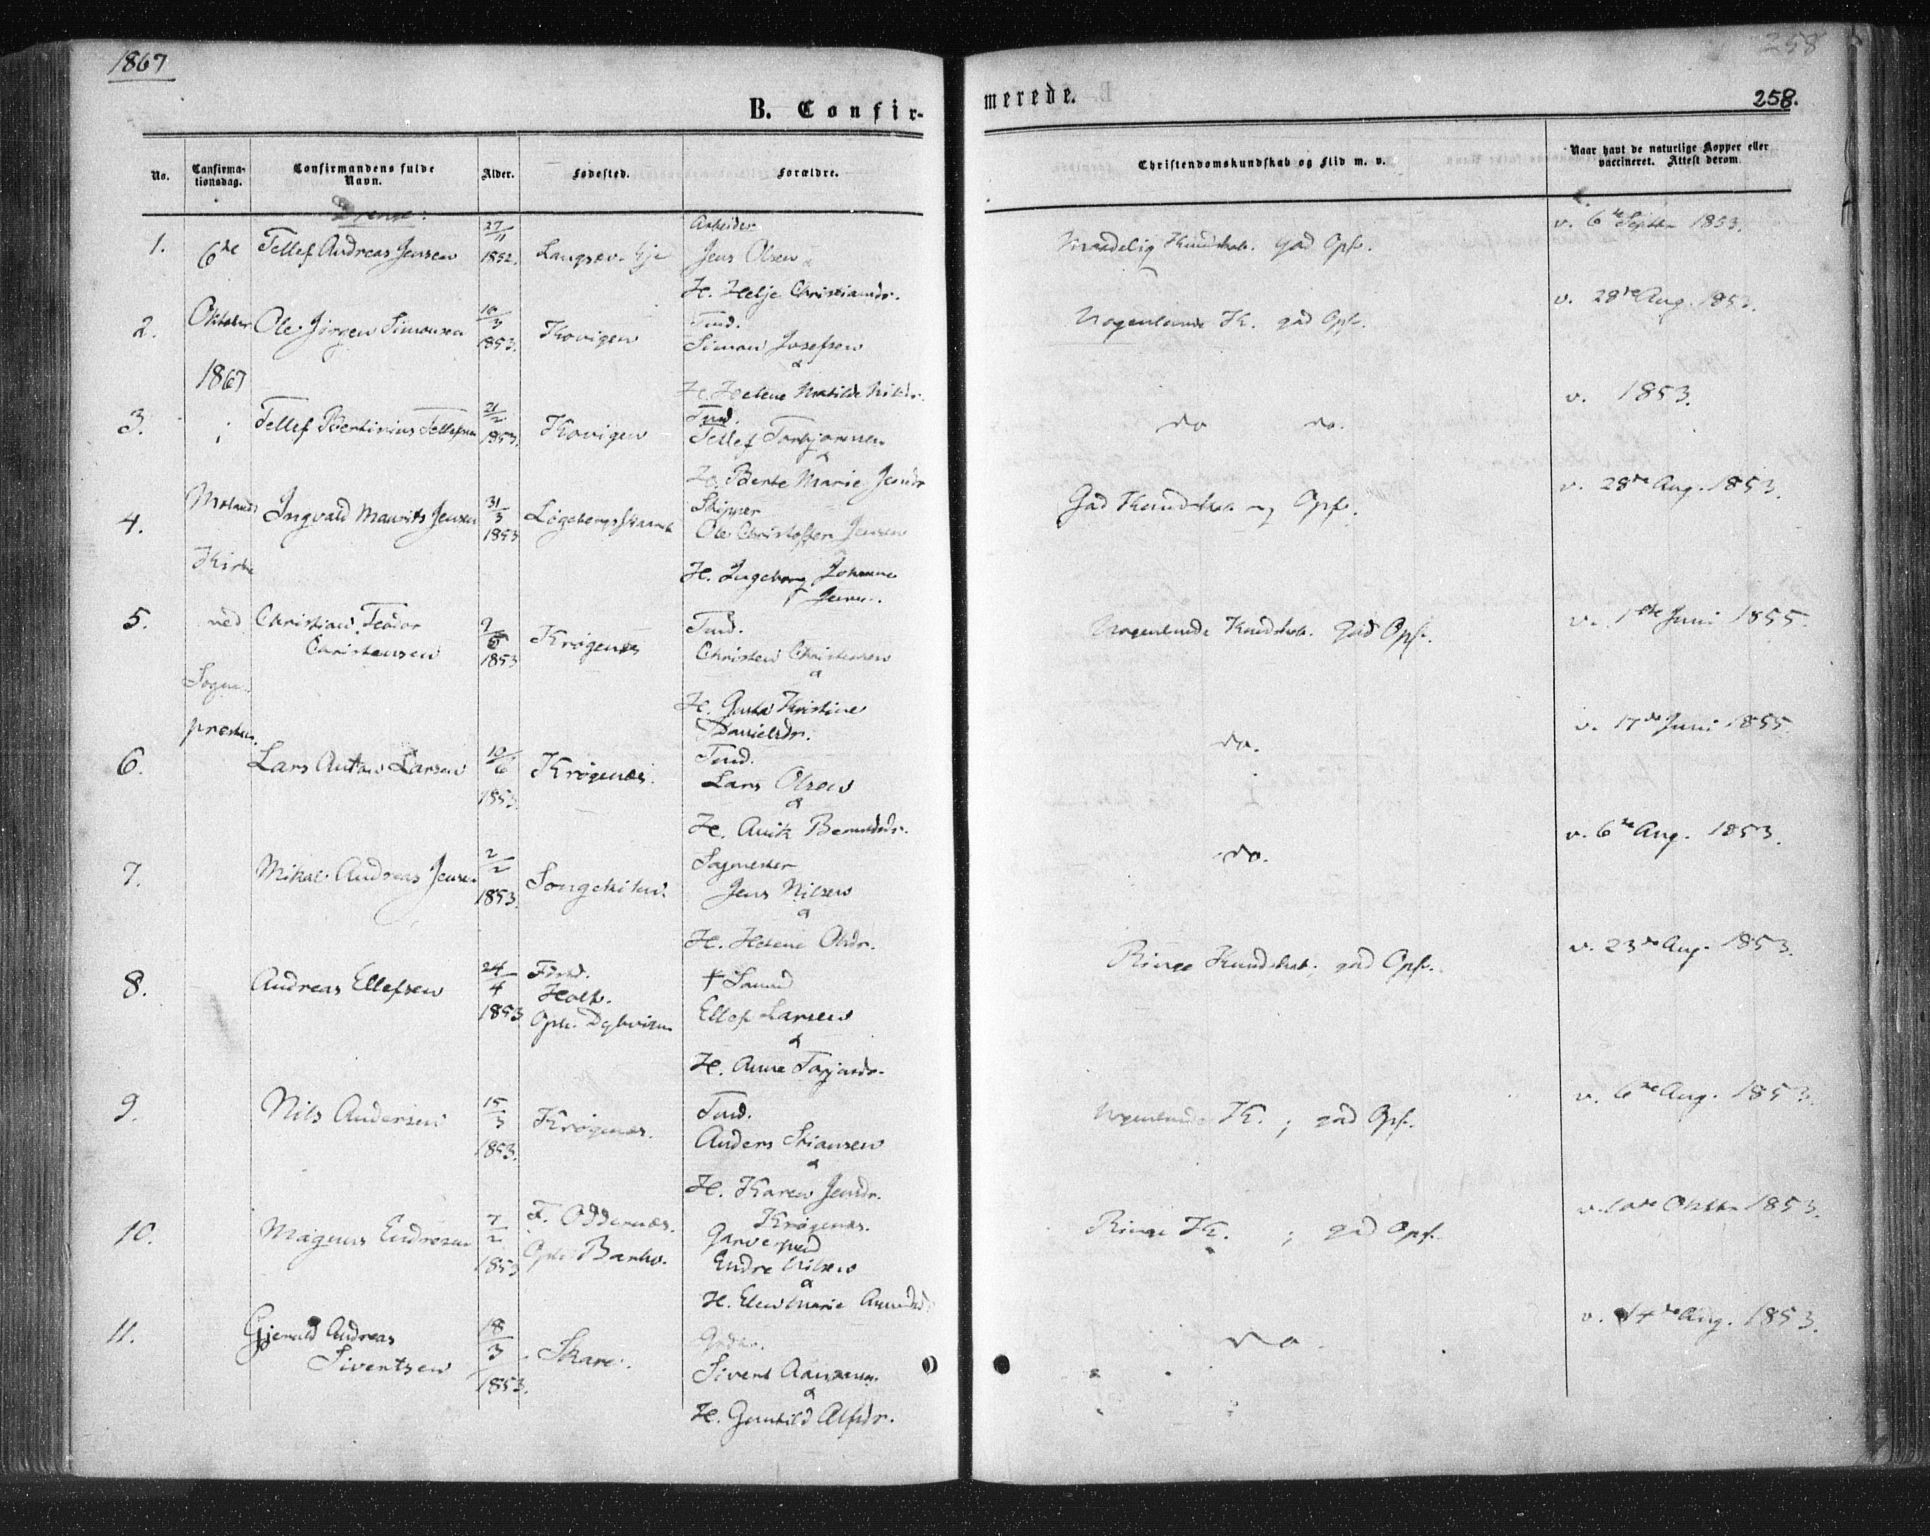 1867
258
B. Confir-
merede.
258.
No.
Confirma-
tionsdag.
Confirmandens fulde
Navn.
Alder.
Fødested.
Forældre.
Christendomskundskab og Flid m. v.
Naar havt de naturlige Kopper eller
vaccineret. Attest derom.
Drenge:
6te
Oktober
1867
i
Molands
Kirke
ved
Sogne-
præsten.
1. Tellef Andreas Jensen 27/11 1852. Langsæv Eje
Arbeider
Jens Olsen
&
H. Helje Christiansdr.
Maadelig Kundskab. God Opf.
v. 6te Septbr 1853.
2. Ole Jørgen Simonsen 10/3 1853. Kovigen
Tmd.
Simon Josefsen
&
H. Helene Matilde Nilsdr.
Nogenlunde K. god Opf.
v. 28de Aug. 1853.
3. Tellef Bertinius Tellefsen 21/2 1853. Kovigen
Tmd.
Tellef Torbjørnsen
&
H. Berte Marie Jensdr
do do.
v. 1853.
4. Ingvald Maurits Jensen 31/3 1853
Skipper
Ole Christoffer Jensen
&
H. Ingeborg Johanne
Jensen.
God Kundskab og Opf.
v. 28de Aug. 1853.
5. Christian Teodor
Christensen
9/5 1853 Krøgenæs
Tmd.
Christen Christensen
&
H. Gusta Kristine
Danielsdr.
Nogenlunde Kundskab. God Opf.
v. 1ste Juni 1855.
6. Lars Anton Larsen 10/6 1853. Krøgenæs.
Tmd.
Lars Olsen
&
H. Anik Berntsdr.
do.
v. 17de Juni 1855.
7. Mikal Andreas Jensen 2/2 1853. Songekilen.
Sagmester
Jens Nilsen
&
H. Helene Olsdr.
do.
v. 6te Aug. 1853.
8. Andreas Ellefsen 24/4 1853
Fød.
Holt.
Oph. Dybvigen
† Sømd
Ellef Larsen
&
H. Anne Torjusdr.
Ringe Kundskab; god Opf.
v. 23de Aug. 1853.
9. Nils Andersen 15/3 1853. Krøgenæs.
Tmd.
Anders Stiansen
&
H. Karen Jensdr.
Nogenlunde K.; god Opf.
v. 6te Aug. 1853.
10. Magnus Endresen 7/2 1853
F. Oddernæs.
Oph. Barbo.
Krøgenæs.
Garversvend
Endre Nilsen
&
H. Elen Marie Amundsdr
Ringe K. ; god Opf.
v. 10de Oktbr 1853.
11. Gjeruld Andreas
Sivertsen
18/3 1853. Skare.
Gdbr.
Sivert Aanonsen
&
H. Gunhild Alfsdr.
do.
v. 14de Aug. 1853.